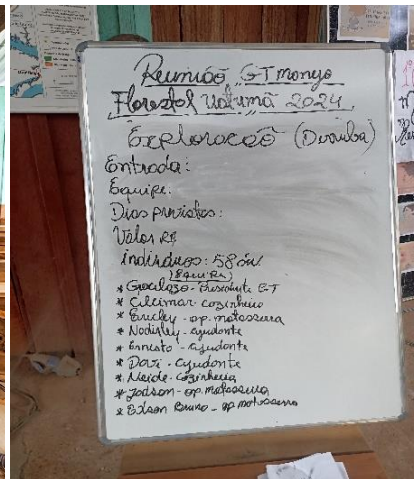 Reunião GT manejo
Florestal Uatumã 2024
Exploração (Derruba)
Entrada:
Equipe:
Dias previstos:
Valor R$
indivíduos: 58 áu
(Equipe)
* - Presidente GT
* Cilcimar - cozinheiro
* Ericley - op. motosserra
* Nodigley - ajudante
* Ernesto - ajudante
* Davi - ajudante
* Neide - cozinheira
* Jadson - op. motosserra
* Edson Bruno - op motosserra